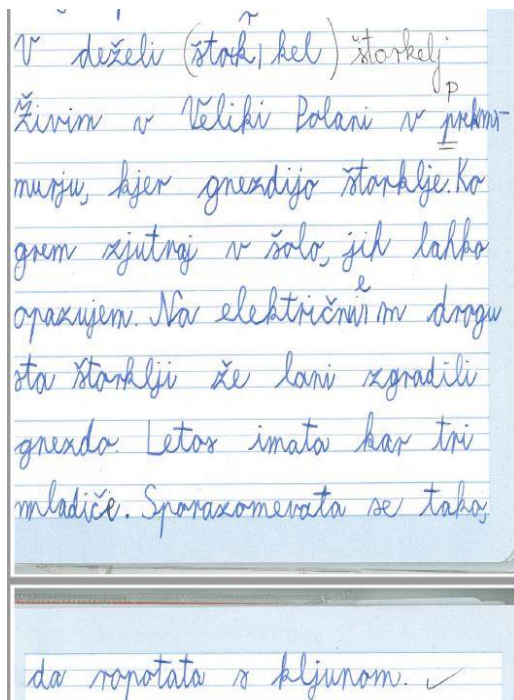 V deželi (štork, kel) štorkelj
Živim v Veliki Polani v prekmr-
murju, kjer gnezdijo štorklje. Ko
grem zjutraj v šolo, jih lahko
opazujem. Na električnem drogu
sta štorklji že lani zgradili
gnezdo. Letos imata kar tri
mladiče. Sporazomevata se tako,
da ropotata s kljunom. ✓